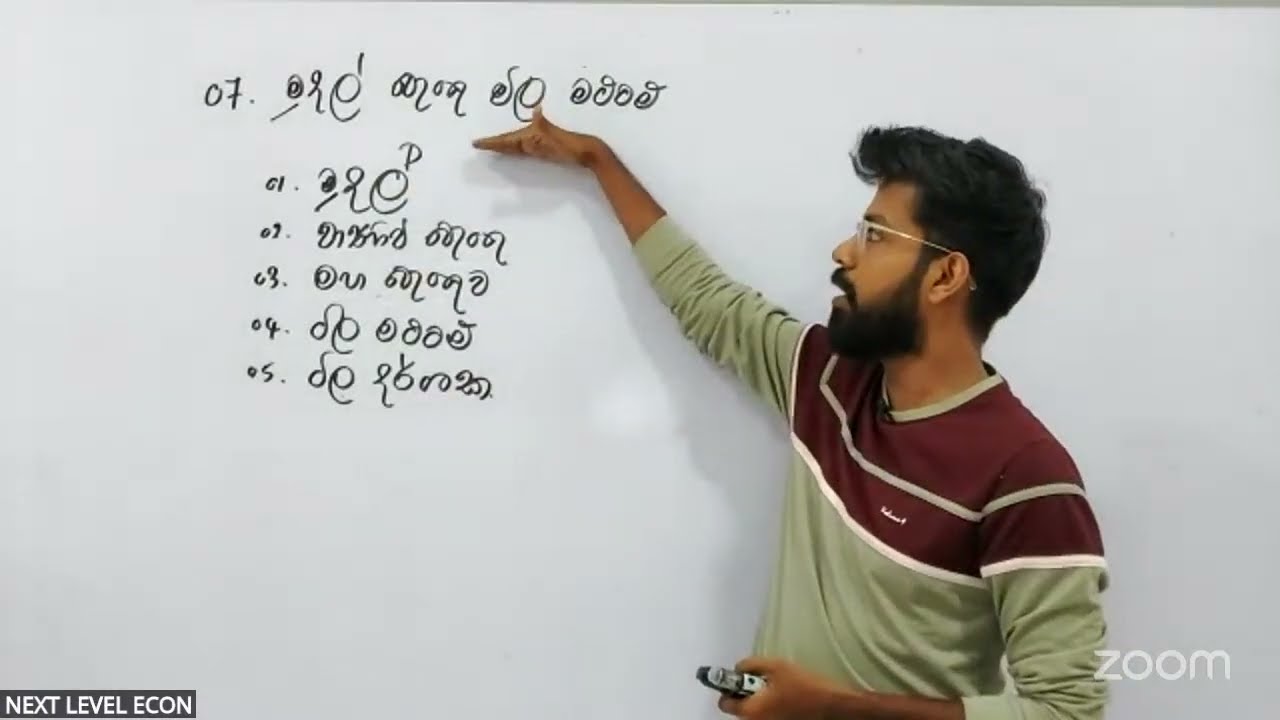 07. මුදල් බැංකු මිල මට්ටම්
01. මුදල් P
02. වාණිජ බැංකු
03. මහ බැංකුව
04. මිල මට්ටම්
05. මිල දර්ශක
zoom
NEXT LEVEL ECON